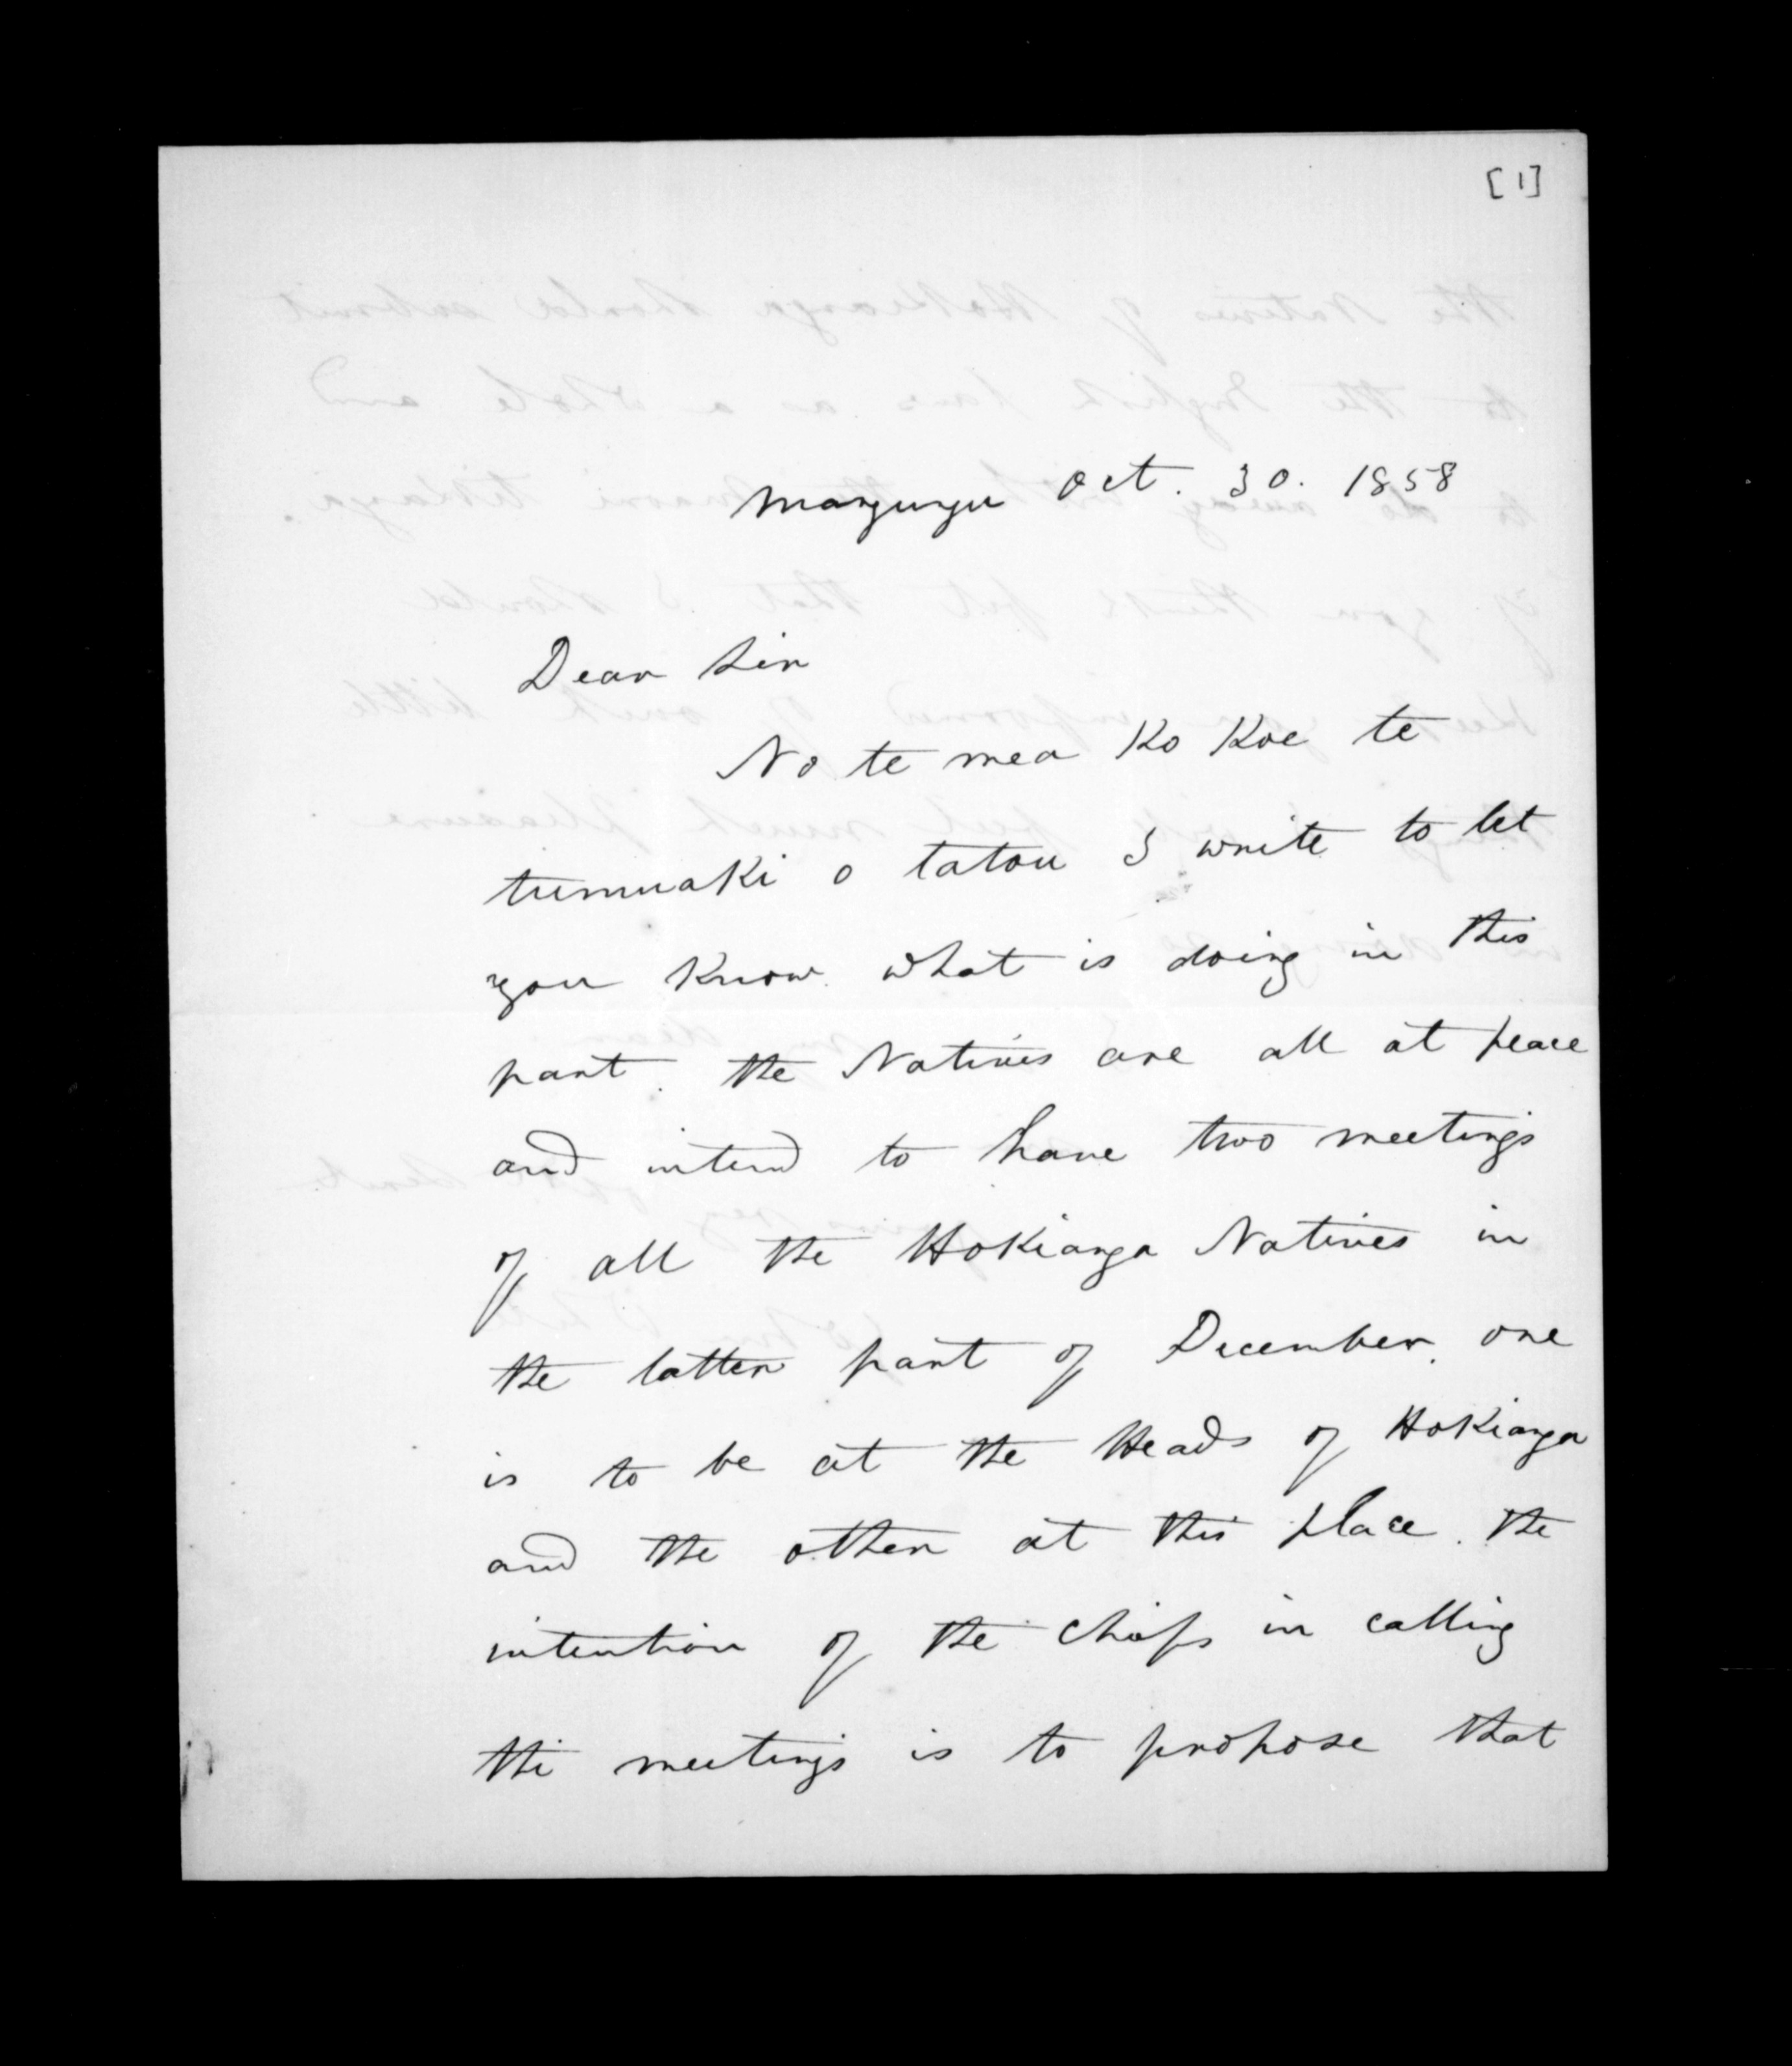 [1]
Mangungu Oct. 30. 1858
Dear Sir
No te mea Ko Koe te
tumuaki o tatou I write to let
you Know what is doing in this
part. the Natives are all at peace
and intend to have two meetings
of all the Hokianga Natives in
the latter part of December. one
is to be at the Heads of Hokianga
and the other at this place. the
intention of the chiefs in calling
the meetings is to propose that